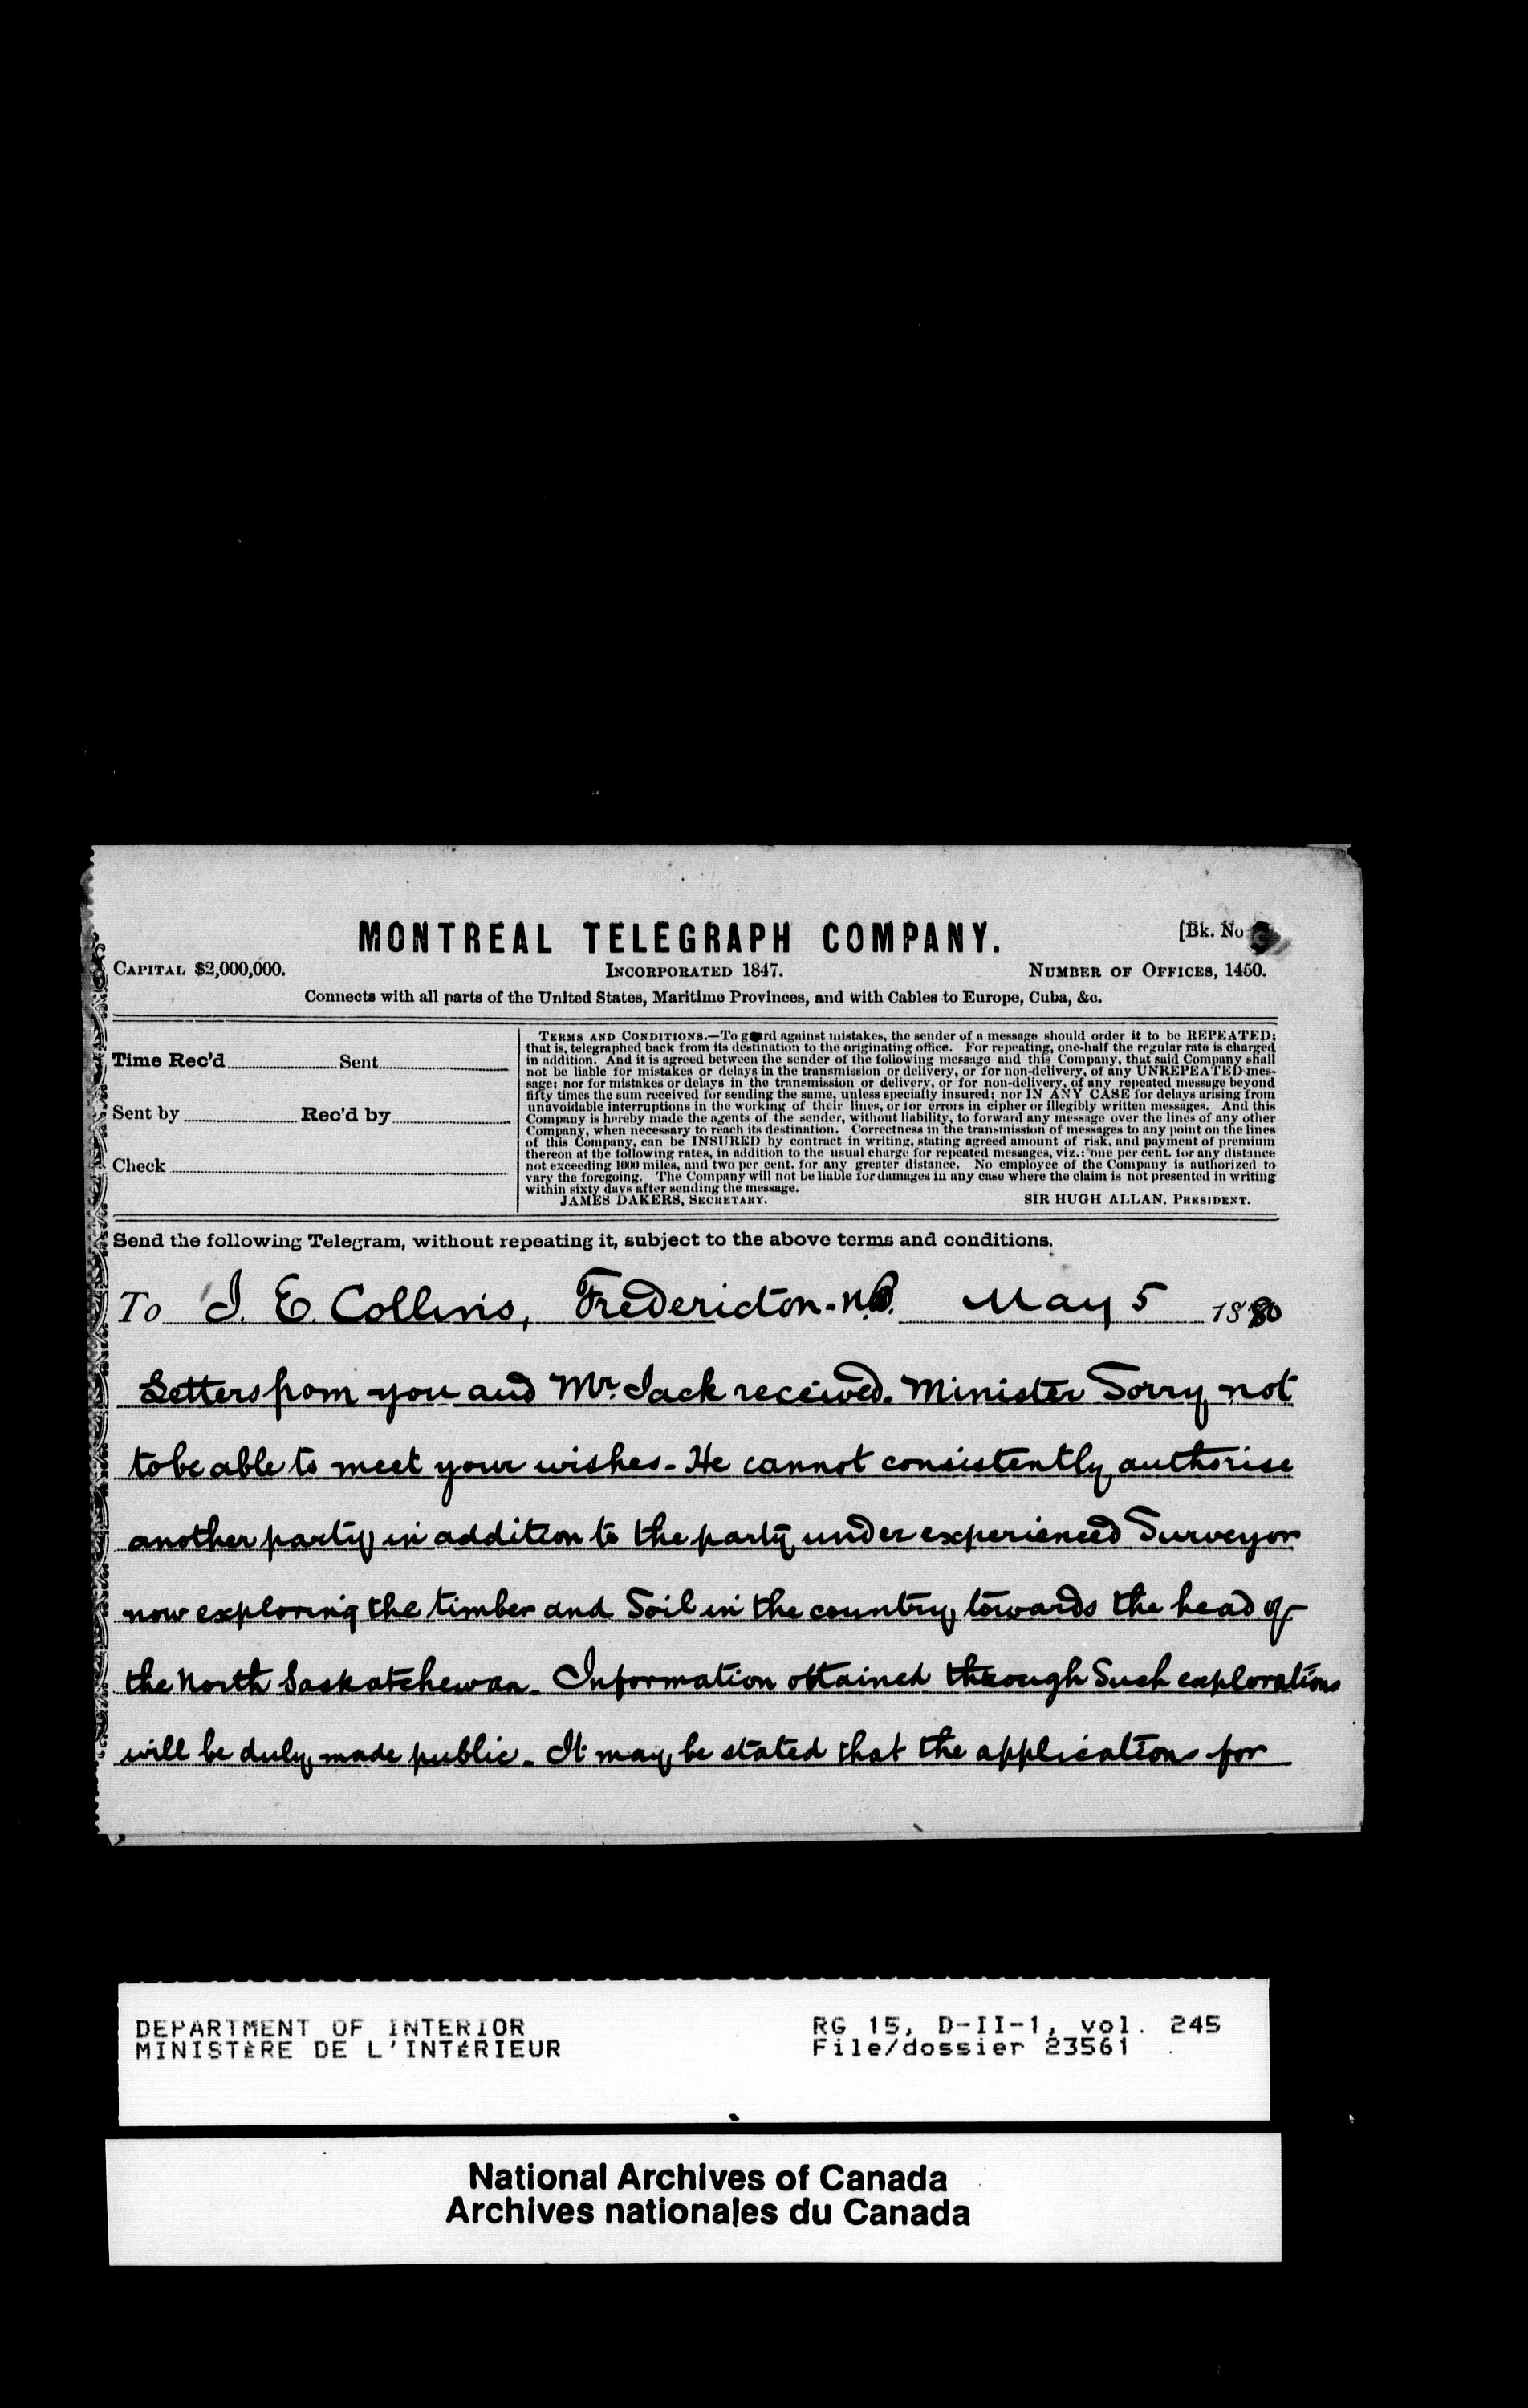 MONTREAL TELEGRAPH COMPANY.
[Bk. No
CAPITAL $2,000,000. INCORPORATED 1847. NUMBER OF OFFICES, 1450.
Connects with all parts of the United States, Maritime Provinces, and with Cables to Europe, Cuba, &c.
Time Rec'd Sent
Sent by Rec'd by
Check
TERMS AND CONDITIONS.—To guard against mistakes, the sender of a message should order it to be REPEATED;
that is, telegraphed back from its destination to the originating office. For repeating, one-half the regular rate is charged
in addition. And it is agreed between the sender of the following message and this Company, that said Company shall
not be liable for mistakes or delays in the transmission or delivery, or for non-delivery, of any UNREPEATED mes-
sage; nor for mistakes or delays in the transmission or delivery, or for non-delivery, of any repeated message beyond
fifty times the sum received for sending the same, unless specially insured; nor IN ANY CASE for delays arising from
unavoidable interruptions in the working of their lines, or for errors in cipher or illegibly written messages. And this
Company is hereby made the agents of the sender, without liability, to forward any message over the lines of any other
Company, when necessary to reach its destination. Correctness in the transmission of messages to any point on the lines
of this Company, can be INSURED by contract in writing, stating agreed amount of risk, and payment of premium
thereon at the following rates, in addition to the usual charge for repeated messages, viz.: one per cent. for any distance
not exceeding 1000 miles, and two per cent. for any greater distance. No employee of the Company is authorized to
vary the foregoing. The Company will not be liable for damages in any case where the claim is not presented in writing
within sixty days after sending the message.
JAMES DAKERS, SECRETARY. SIR HUGH ALLAN, PRESIDENT.
Send the following Telegram, without repeating it, subject to the above terms and conditions.
To J. E. Collins, Fredericton. N.B. May 5 1880
Letters from you and Mr. Jack received. Minister Sorry not
to be able to meet your wishes. He cannot consistently authorise
another party in addition to the party under experienced Surveyor
now exploring the timber and Soil in the country towards the head of
the North Saskatchewan. Information obtained through Such explorations
will be duly made public. It may be stated that the applications for
DEPARTMENT OF INTERIOR
MINISTÈRE DE L'INTÉRIEUR
RG 15, D-II-1, vol. 245
File/dossier 23561
National Archives of Canada
Archives nationales du Canada